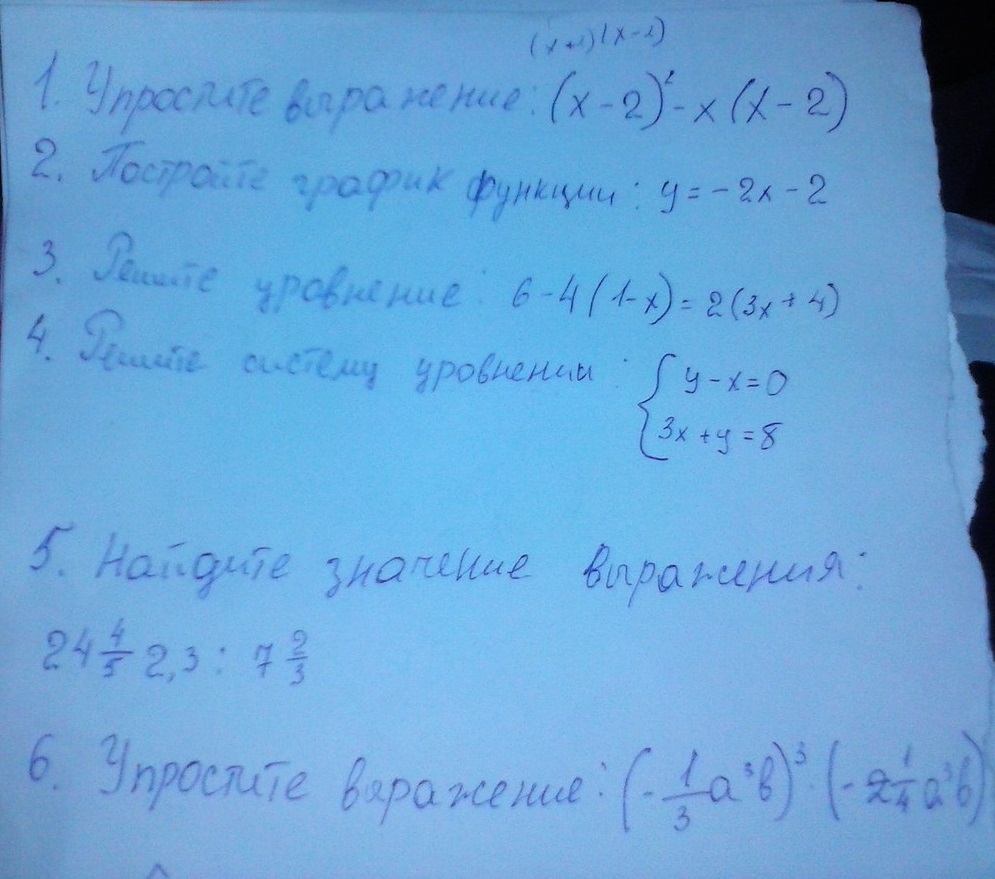 (x+2)(x-2)
1. Упростите выражение: (x-2)² - x(x-2)
2. Постройте график функции: y = -2x-2
3. Решите уровнение: 6-4(1-x)=2(3x+4)
4. Решите систему уровнении: { y-x=0
3x+y=8
5. Найдите значение выражения:
24 4/5 2,3 : 7 2/3
6. Упростите выражение: (-1/3 a³b)³ · (-2 1/4 a³b)